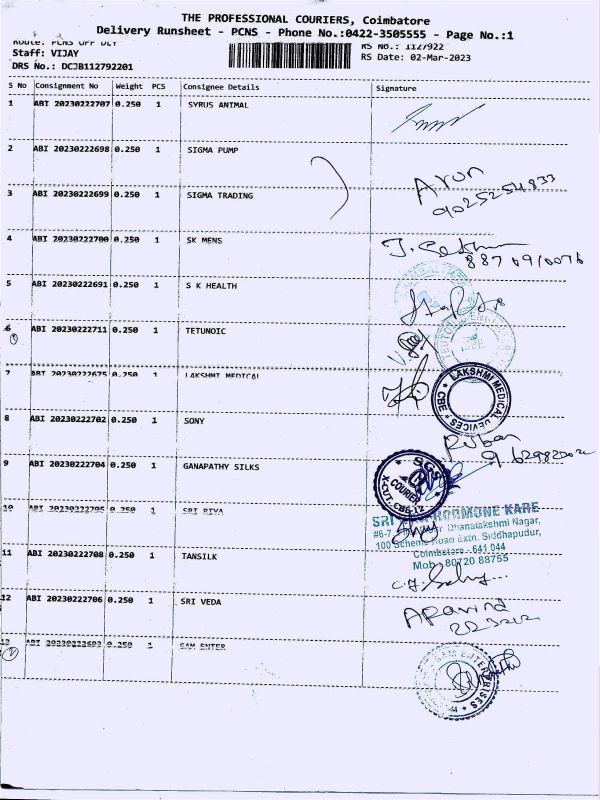 THE PROFESSIONAL COURIERS, Coimbatore
Delivery Runsheet - PCNS - Phone No.:0422-3505555 - Page No.:1
Route: PCNS OFF DLY
RS No.: 1127922
Staff: VIJAY
RS Date: 02-Mar-2023
DRS No.: DCJB112792201
S No Consignment No Weight PCS Consignee Details Signature
1 ABI 20230222707 0.250 1 SYRUS ANIMAL
2 ABI 20230222698 0.250 1 SIGMA PUMP
Arun
9025254833
3 ABI 20230222699 0.250 1 SIGMA TRADING
4 ABI 20230222700 0.250 1 SK MENS
5 ABI 20230222691 0.250 1 S K HEALTH
6 ABI 20230222711 0.250 1 TETUNOIC
7 ABI 20230222675 0.250 1 LAKSHMI MEDICAL
LAKSHMI MEDICAL DEVICES * CBE *
8 ABI 20230222702 0.250 1 SONY
Ruban
9 ABI 20230222704 0.250 1 GANAPATHY SILKS
SGS COURIER X-CUT, CBE-12
10 ABI 20230222705 0.250 1 SRI RIYA
SRI HORMONE KARE
#6-7, Dhanalakshmi Nagar,
100 Scheme Road Extn, Siddhapudur,
Coimbatore - 641 044
Mob : 80720 88755
11 ABI 20230222708 0.250 1 TANSILK
12 ABI 20230222706 0.250 1 SRI VEDA
Aravind
13 ABI 20230222693 0.250 1 SAM ENTER
ENTERPRISES